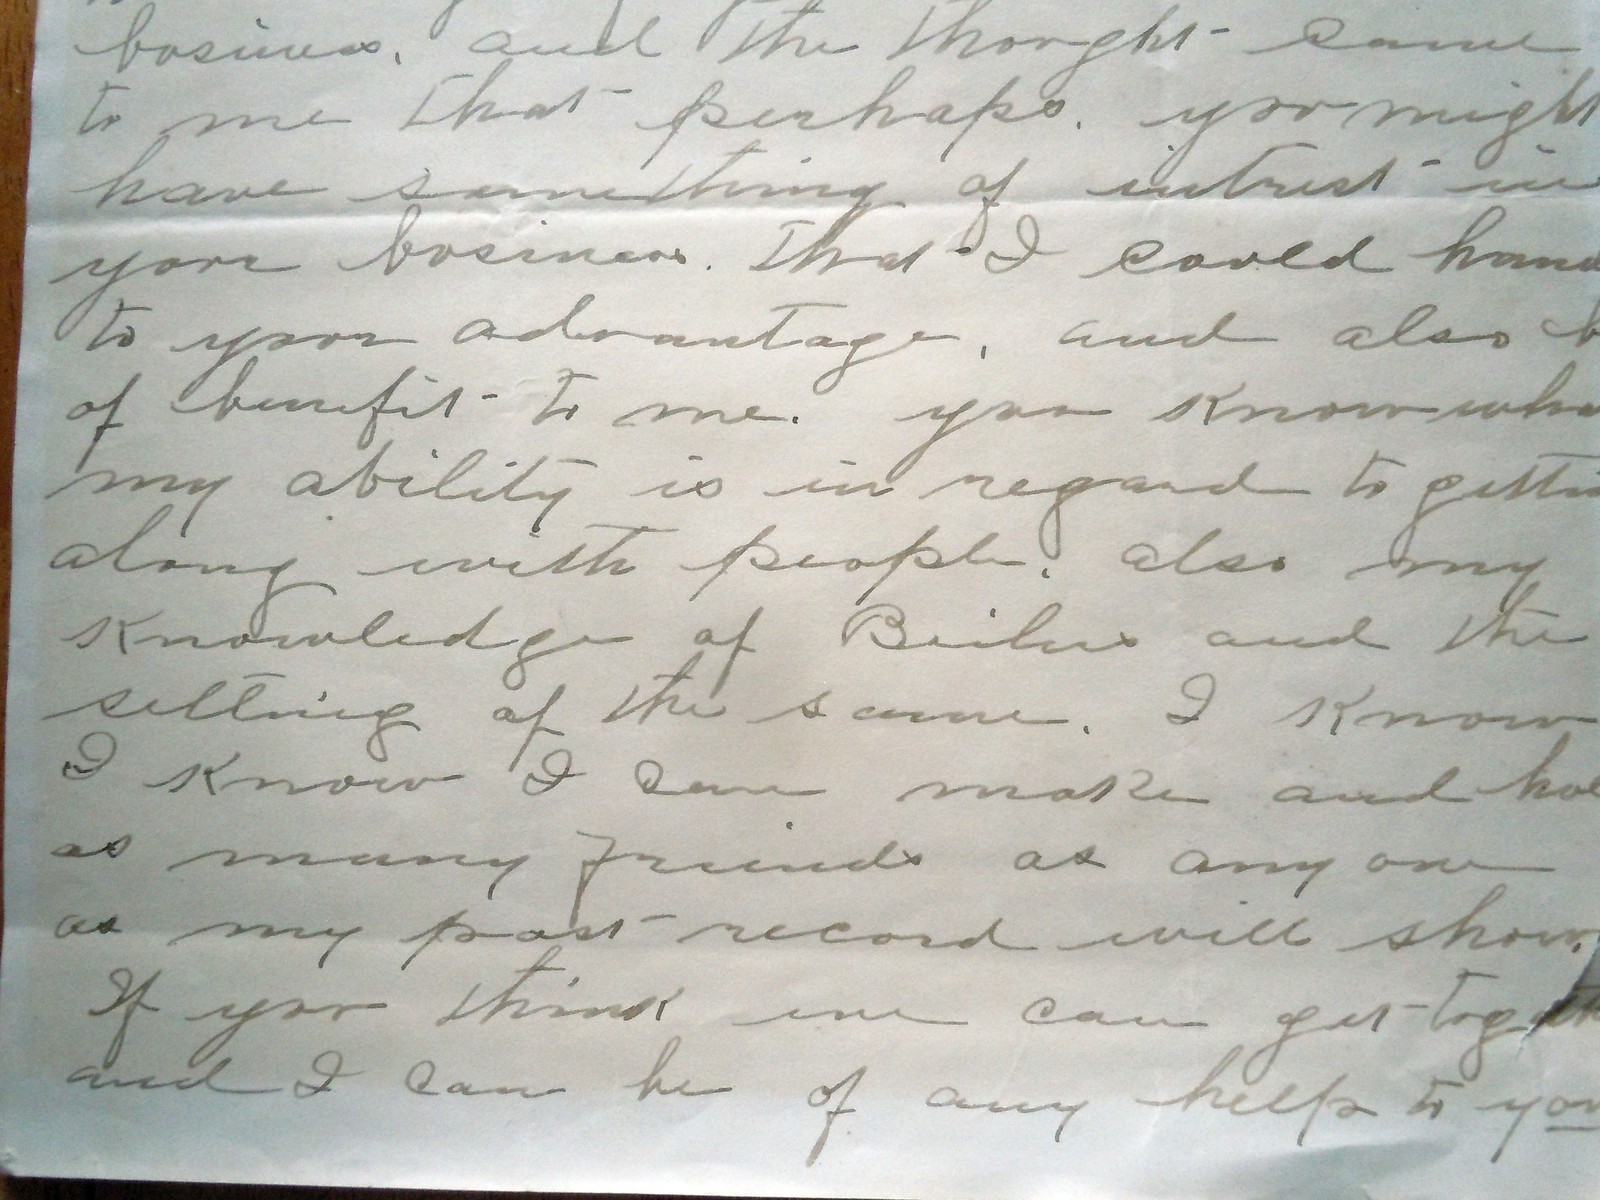 business, and the thought came
to me that perhaps, you might
have something of intrest in
your business. that I could
to your advantage, and also
of benefit to me. you know
my ability is in regard to
along with people, also my
knowledge of and the
setting of the same. I know
I know I can make and
as many friends as any one
as my past record will show.
If you think we can get
and I can be of any help to you